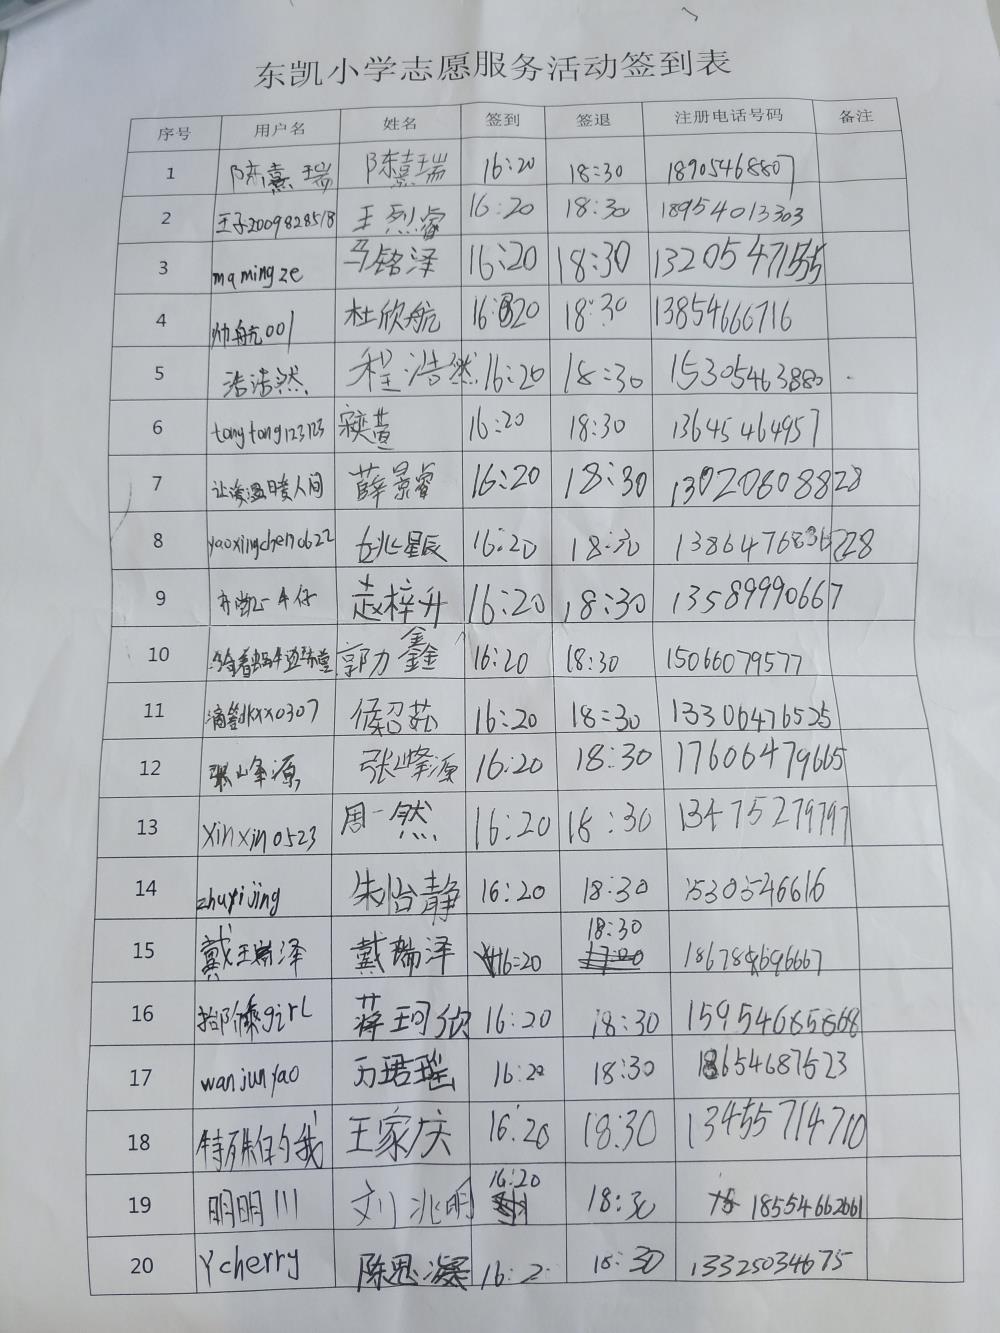 东凯小学志愿服务活动签到表
序号 用户名 姓名 签到 签退 注册电话号码 备注
1 陈熹瑞 陈熹瑞 16:20 18:30 18905468807
2 王子2009828518 王烈睿 16:20 18:30 18954013303
3 mamingze 马铭泽 16:20 18:30 1320547155
4 帅航001 杜欣航 16:20 18:30 13854666716
5 浩浩然 程浩然 16:20 18:30 15305463880
6 tongtong123123 16:20 18:30 13645464957
7 薛景睿 16:20 18:30 13020608828
8 yaoxingchen0622 姚星辰 16:20 18:30
9 赵梓升 16:20 18:30 13589990667
10 郭力鑫 16:20 18:30 15066079577
11 侯绍茹 16:20 18:30 13306476525
12 张峰源 张峰源 16:20 18:30 17606479665
13 xinxin0523 周一然 16:20 18:30 13475279797
14 zhuyijing 朱怡静 16:20 18:30 1530546616
15 戴瑞泽 戴瑞泽 16:20 18:30
16 蒋珂欣 16:20 18:30
17 wanjunyao 万珺瑶 16:20 18:30 18654687523
18 特殊的我 王家庆 16:20 18:30 13455714710
19 明明川 刘兆明 16:20 18:30 18554662661
20 Ycherry 陈思凝 16:2 18:30 13325034675